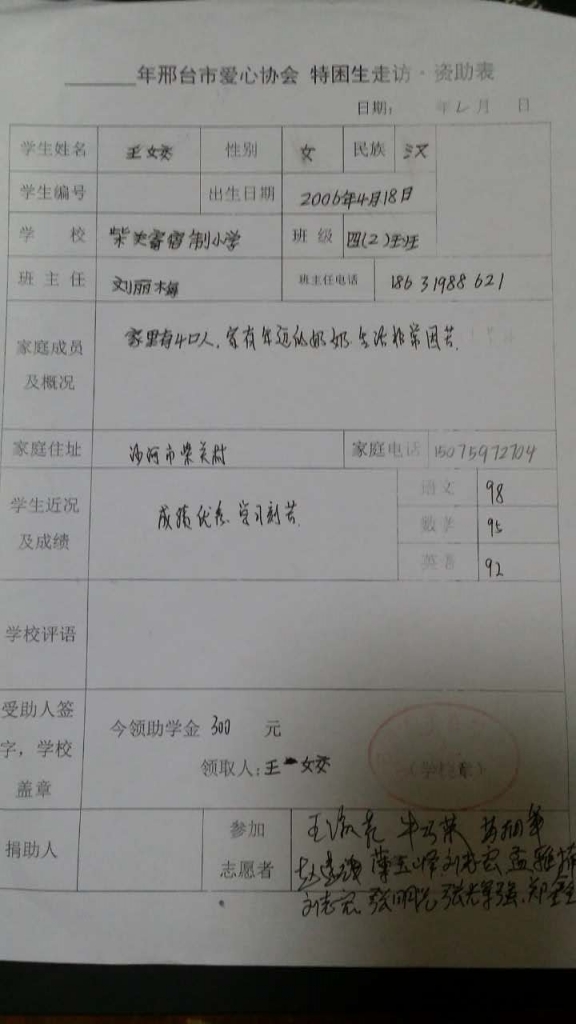 年邢台市爱心协会 特困生走访·资助表
日期： 年 月 日
学生姓名 王姣 性别 女 民族 汉
学生编号 出生日期 2006年4月18日
学 校 柴关寄宿制小学 班 级 四(2)班
班 主 任 刘丽梅 班主任电话 18631988621
家庭成员
及概况
家里有4口人,家有年迈的奶奶.生活非常困苦.
家庭住址 沙河市柴关村 家庭电话 15075972704
学生近况
及成绩
成绩优秀.学习刻苦.
语文 98
数学 95
英语 92
学校评语
受助人签
字，学校
盖章
今领助学金 300 元
领取人:王姣
(学校章)
捐助人
参加
志愿者
刘志宏